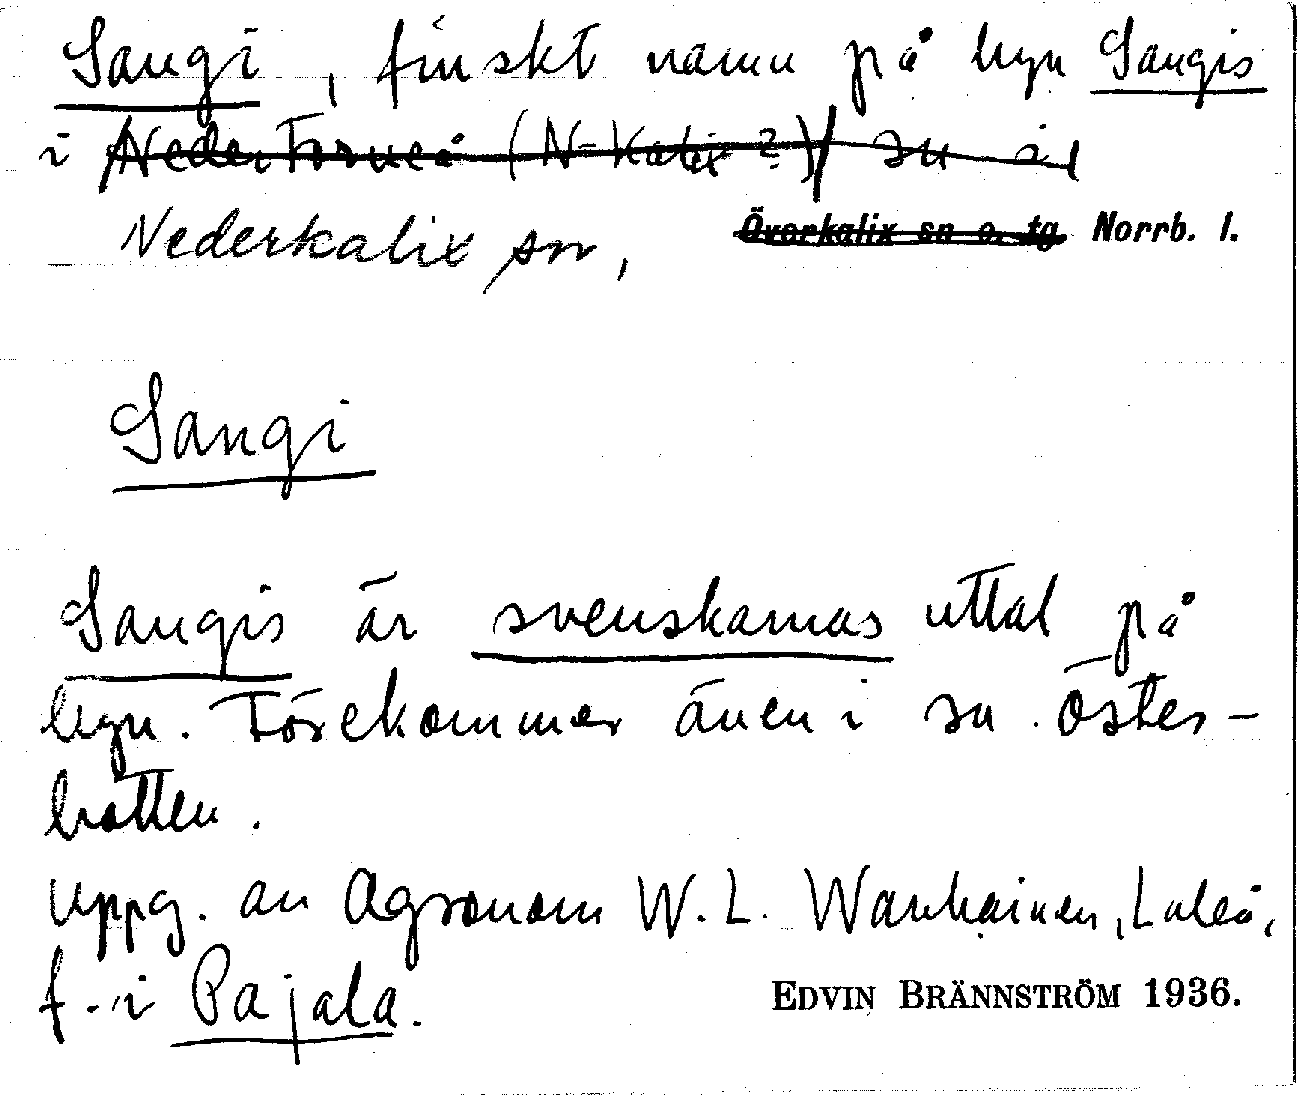 Sangi, finskt namn på byn Sangis
i Neder Torneå (N-Kalix?) sn i
Nederkalix sn, Överkalix sn o. tg Norrb. l.
Sangi
Sangis är svenskarnas uttal på
byn. Förekommer även i sv. Öster-
botten.
Uppg. av Agronom W. L. Wanhainen, Luleå,
f. i Pajala.
EDVIN BRÄNNSTRÖM 1936.